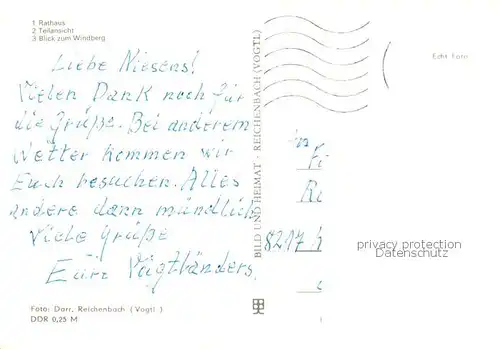 1 Rathaus
2 Teilansicht
3 Blick zum Windberg
Liebe Niesens!
Vielen Dank noch für
die Grüße. Bei anderem
Wetter kommen wir
Euch besuchen. Alles
andere dann mündlich
Viele Grüße
Eure Vogtländers.
Foto: Darr, Reichenbach (Vogtl.)
DDR 0,25 M
BILD UND HEIMAT · REICHENBACH (VOGTL)
Echt Foto
8217
privacy protection
Datenschutz